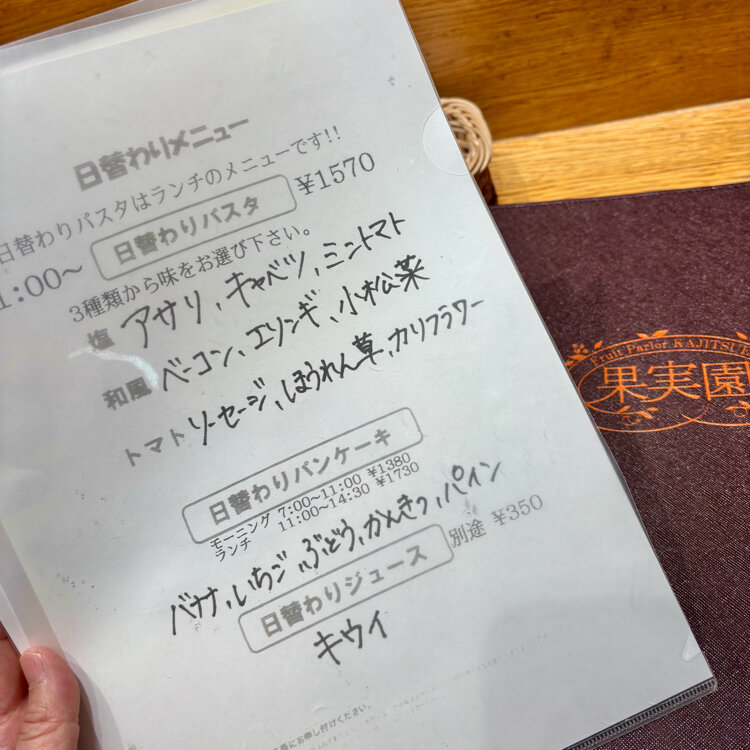 日替わりメニュー
日替わりパスタはランチのメニューです!!
1:00~ 日替わりパスタ ¥1570
3種類から味をお選び下さい。
塩 アサリ、キャベツ、ミニトマト
和風 ベーコン、エリンギ、小松菜
トマト ソーセージ、ほうれん草、カリフラワー
日替わりパンケーキ
モーニング 7:00~11:00 ¥1380
ランチ 11:00~14:30 ¥1730
バナナ、いちご、ぶどう、かんきつ、パイン
日替わりジュース 別途 ¥350
キウイ
にお申し付けください。
Fruit Parlor KAJITSU
果実園